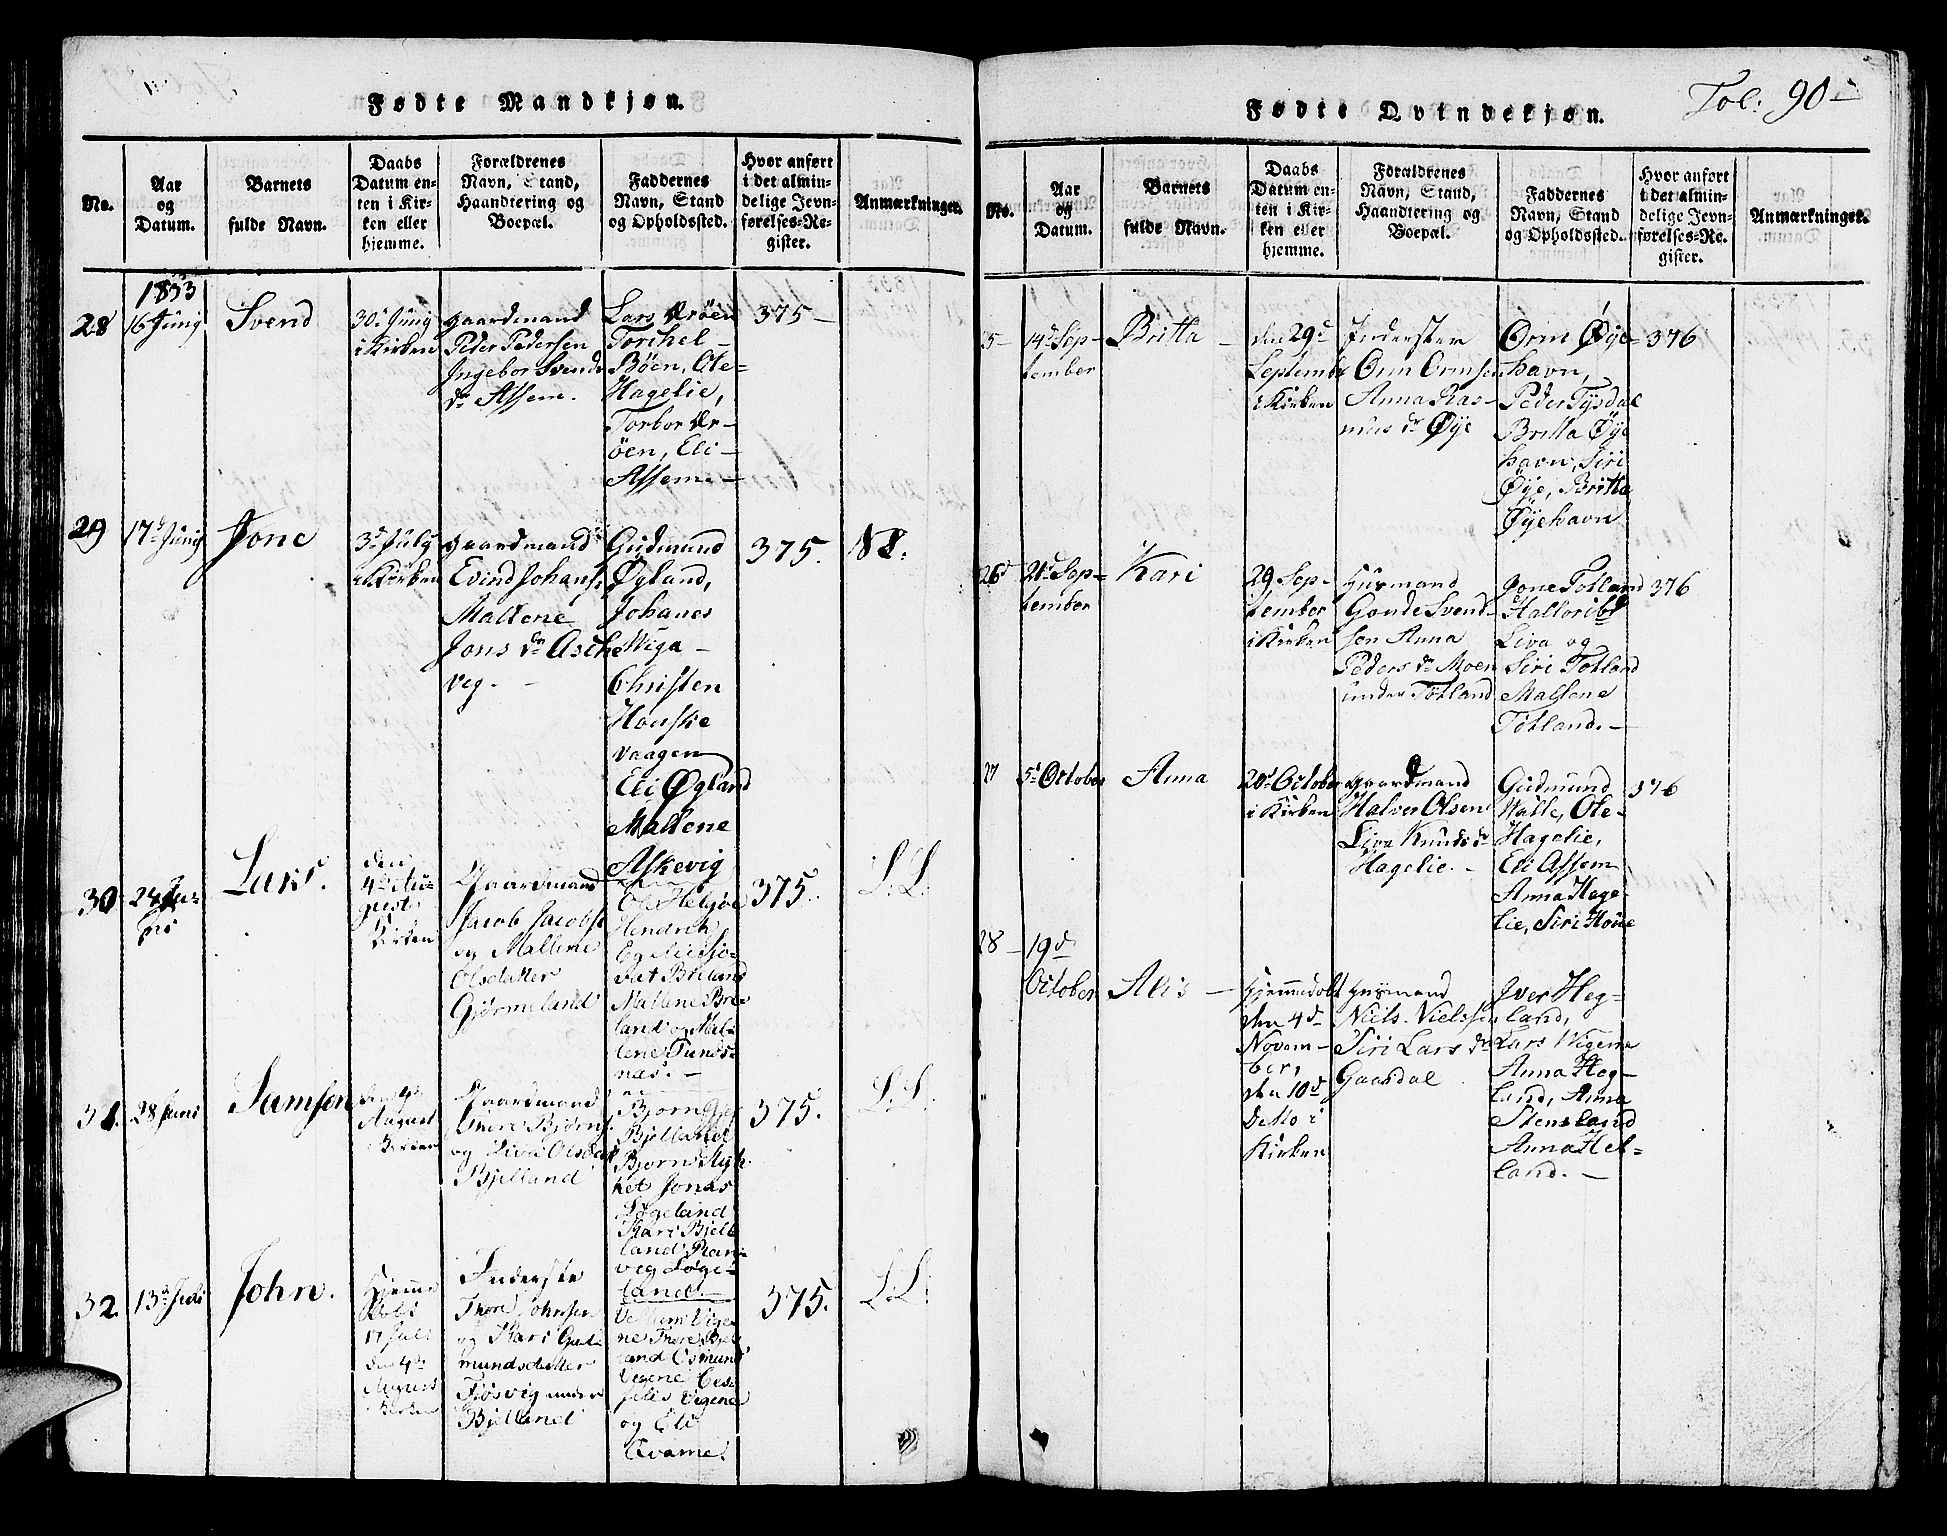 Fødte Mandkjøn.
No.
Aar
og
Datum.
Barnets
fulde Navn.
Daabs
Datum en-
ten i Kir-
ken eller
hjemme.
Forældrenes
Navn, Stand,
Haandtering og
Boepæl.
Faddernes
Navn, Stand
og Opholdssted.
Hvor anført
i det almin-
delige Jevn-
førelses-Re-
gister.
Anmærkninger.
1833
28
16 Junij
Svend
30te Junij
i Kirken
gaardmand
Peder Pedersen
Ingebor Svends
dr Assem.
Lars Drøen
Torchel
Bøen, Ole
Hagelie,
Torbor Dr-
øen, Eli
Assem
375
29
17d Junij
Jone
3d July
i Kirken
gaardmand
Evind Johans.
Maltene
Jons dr Asche
veg.
Gudmund
Øgland,
Johanes
Wiga
Christen
Houske
vaagen
Eli Øgland
Maltene
Askevig
375.
30
24 Ju-
ni
Lars.
den
4de Au-
gust
Kirken
Gaardmand
Jacob Jacobs
og Mallene
Olsdatter
Gjørmeland
Ole Helgøe
Hendrik
Mallene Bre-
land og Mal-
lene Tunds-
næs.
375.
L. L.
31.
28 Juni
Samson
August
Kirken
Gaardmand
Bjørns.
og Liva Olsdatt
Bjelland
Bjørn
Bjelland
Bjørn Myk
ket Jonas
Løgeland
Kari Bjel-
land Ran-
veg Løge-
land.
375.
L. L.
32.
13de Juli
John.
Hjemme
døbt
17 Juli
den 4de
August
Kirken
Inderste
Thore Johnsen
og Kari Gud-
mundsdatter
Fjøsvig under
Bjelland
Vellum Vige-
ne Thore Bjel-
land Osmund
Vigene
Vigene
og Eli
Qvame.
375.
L. L.
Fødte Qvindekjøn.
Fol: 90
No.
Aar
og
Datum.
Barnets
fulde Navn.
Daabs
Datum en-
ten i Kir-
ken eller
hjemme.
Forældrenes
Navn, Stand,
Haandtering og
Boepæl.
Faddernes
Navn, Stand
og Opholdssted.
Hvor anført
i det almin-
delige Jevn-
førelses-Re-
gister.
Anmærkninger.
5
14d Sep-
tember
Britta
den 29d
Septemb
i Kirken
Inderster
Orm Ormsen
Anna Ras-
mus dr Øye
Orm Øye-
havn,
Peder Tysdal
Britta Øye
havn, Siri
Øye, Britta
Øyehavn
376
26d
21d Sep-
tember
Kari
29 Sep-
tember
i Kirken
Husmand
Gonde Svend-
sen Anna
Peders dr Moen
under Totland
Jone Totland
Liva og
Siri Totland
Maltene
Totland.
376
27
5d October
Anna
20d October
i Kirken
gaardmand
Halver Olsen
Liva Knuds dr
Hagelie.
Gudmund
Walle, Ole
Hagelie,
Eli Assem
Anna Hage-
lie, Siri Houe
376
28
19d
October
Alis
Hjemmedøbt
den 4d
Novem-
ber,
den 10d
Detto i
Kirken
Husmand
Niels Nielssen
Siri Lars dr
Gaasdal
Iver Heg-
land,
Lars Wigene
Anna Heg-
land, Anna
Stensland
Anna Het-
land.